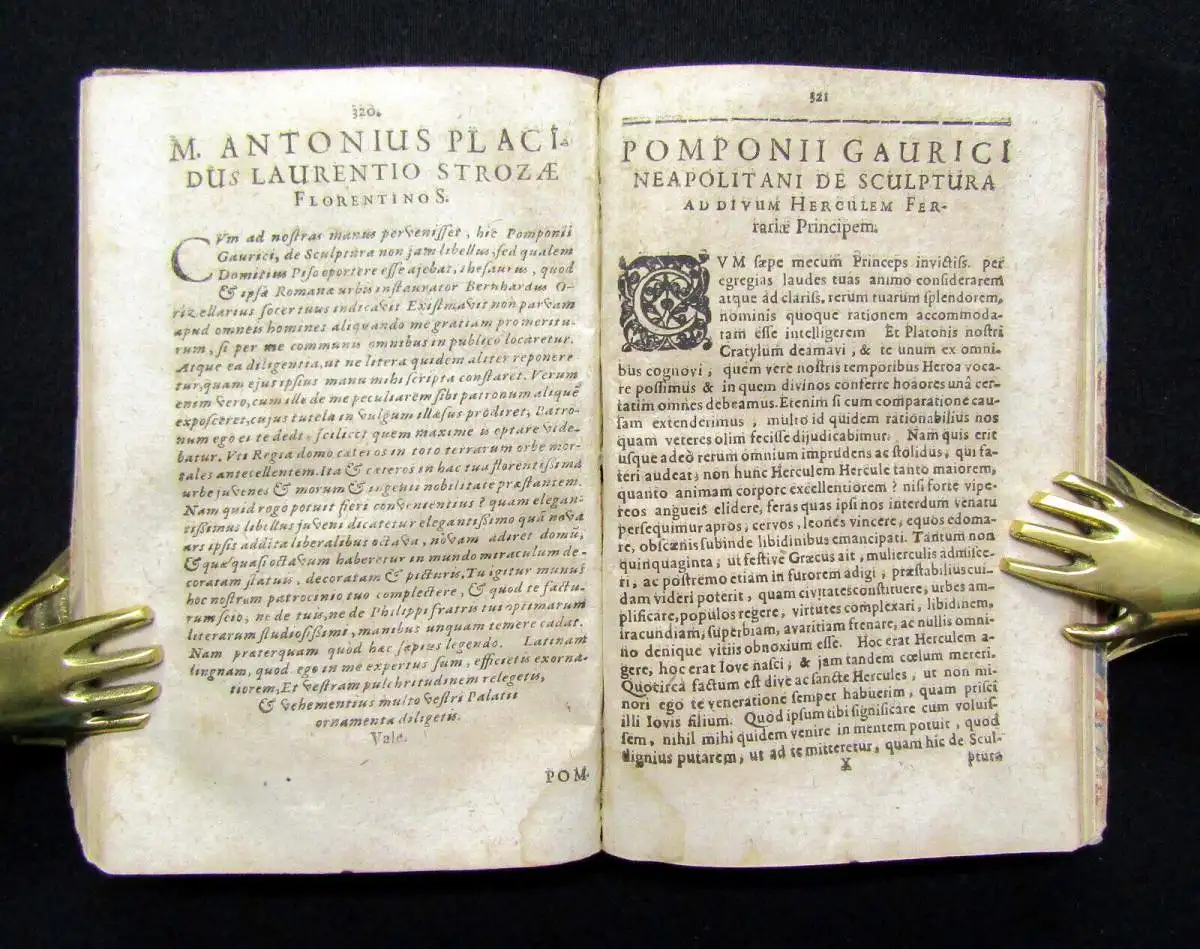 320.
M. ANTONIUS PLACI-
DUS LAURENTIO STROZÆ
FLORENTINO S.
CVm ad nostras manus pervenisset, hic Pomponii
Gaurici, de Sculptura non jam libellus, sed qualem
Domitius Piso oportere esse ajebat, thesaurus, quod
& ipse Romanæ urbis instaurator Bernhardus O-
ricellarius socer tuus indicavit Existmavit non parvam
apud omneis homines aliquando me gratiam promeritu-
rum, si per me communis omnibus in publico locaretur.
Atque ea diligentia, ut ne litera quidem aliter reponere
tur, quam ejus ipsius manu mihi scripta constaret. Verum
enim vero, cum ille de me peculiarem sibi patronum aliquē
exposceret, cujus tutela in vulgum illæsus prodiret, Patro-
num ego ei te dedi scilicet quem maxime is optare vide-
batur. Vti Regia domo cæteros in toto terrarum orbe mor-
tales antecellentem. Ita & cæteros in hac tua florentissima
urbe juvenes & morum & ingenii nobilitate præstantem.
Nam quid rogo potuit fieri convenientius? quam elegan-
tissimus libellus juveni dicatur elegantissimo quā nova
ars ipsis addita liberalibus octava, novam adiret domū,
& quæ quasi octavum haberetur in mundo miraculum de-
coratam statuis, decoratam & picturis. Tu igitur munus
hoc nostrum patrocinio tuo complectere, & quod te factu-
rum scio, ne de tuis, ne de Philippi fratris tui optimarum
literarum studiosissimi, manibus unquam temere cadat.
Nam præterquam quòd hac sæpius legendo. Latinam
lingnam, quod ego in me expertus sum, efficietis exorna-
tiorem, Et vestram pulchritudinem relegetis,
& vehementius multo vestri Palatii
ornamenta diligetis.
Vale.
POM-
321
POMPONII GAURICI
NEAPOLITANI DE SCULPTURA
AD DIVUM HERCULEM FER-
rariæ Principem.
CVM sæpe mecum Princeps invictiss. per
egregias laudes tuas animo considerarem
atque ad clariss. rerum tuarum splendorem,
nominis quoque rationem accommoda-
tam esse intelligerem Et Platonis nostri
Cratylum deamavi, & te unum ex omni-
bus cognovi, quem vere nostris temporibus Heroa voca-
re possimus & in quem divinos conferre honores unâ cer-
tatim omnes debeamus. Etenim si cum comparatione cau-
sam extenderimus, multo id quidem rationabilius nos
quam veteres olim fecisse dijudicabimur. Nam quis erit
usque adeò rerum omnium imprudens ac stolidus, qui fa-
teri audeat, non hunc Herculem Hercule tanto maiorem,
quanto animam corpore excellentiorem? nisi forte vipe-
reos angueis elidere, feras quas ipsi nos interdum venatu
persequimur apros, cervos, leones vincere, equos edoma-
re, obscænis subinde libidinibus emancipati. Tantum non
quinquaginta, ut festivè Græcus ait, mulierculis admisce-
ri, ac postremo etiam in furorem adigi, præstabilius cui-
dam videri poterit, quam civitates constituere, urbes am-
plificare, populos regere, virtutes complexari, libidinem,
iracundiam, superbiam, avaritiam frenare, ac nullis omni-
no denique vitiis obnoxium esse. Hoc erat Herculem a-
gere, hoc erat Iove nasci, & jam tandem cœlum mereri.
Quocirca factum est dive ac sancte Hercules, ut non mi-
nori ego te veneratione semper habuerim, quam prisci
illi Iovis filium. Quòd ipsum tibi significare cum voluis-
sem, nihil mihi quidem venire in mentem potuit, quod
dignius putarem, ut ad te mitteretur, quam hic de Scul-
X ptura